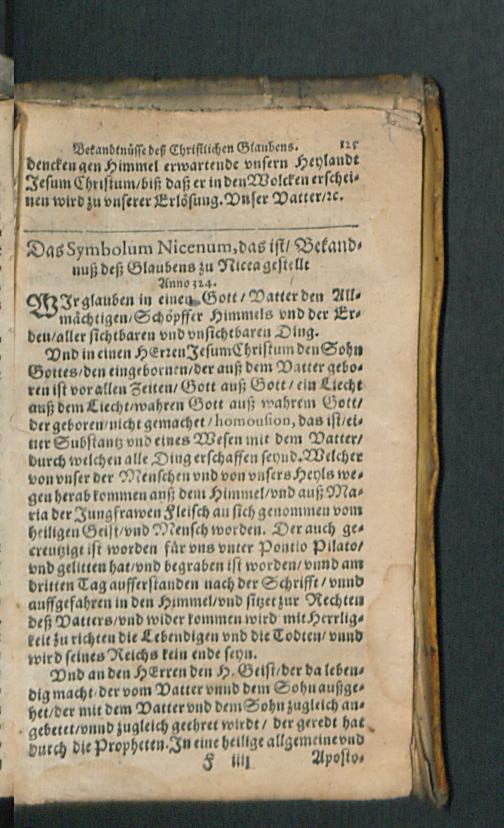 Bekandtnüsse deß Christlichen Glaubens. 125
dencken gen Himmel erwartende vnsern Heylandt
Jesum Christum/biß daß er in den Wolcken erschei-
nen wird zu vnserer Erlösung. Vnser Vatter/ꝛc.
Das Symbolum Nicenum, das ist/ Bekand-
nuß deß Glaubens zu Nicea gestellt
Anno 324.
WJr glauben in einen Gott / Vatter den All-
mächtigen/Schöpffer Himmels vnd der Er-
den/aller sichtbaren vnd vnsichtbaren Ding.
Vnd in einen HErzen Jesum Christum den Sohn
Gottes/den eingebornen/der auß dem Vatter gebo-
ren ist vor allen Zeiten/ Gott auß Gott / ein Liecht
auß dem Liecht/wahren Gott auß wahrem Gott/
der geboren/nicht gemachet / homousion, das ist/ei-
ner Substantz vnd eines Wesen mit dem Vatter/
durch welchen alle Ding erschaffen seynd. Welcher
von vnser der Menschen vnd von vnsers Heyls we-
gen herab kommen auß dem Himmel/vnd auß Ma-
ria der Jungfrawen Fleisch an sich genommen vom
heiligen Geist/vnd Mensch worden. Der auch ge-
creutzigt ist worden für vns vnter Pontio Pilato/
vnd gelitten hat/vnd begraben ist worden/vnnd am
dritten Tag aufferstanden nach der Schrifft / vnnd
auffgefahren in den Himmel/vnd sitzet zur Rechten
deß Vatters/vnd wider kommen wird mit Herrlig-
keit zu richten die Lebendigen vnd die Todten/ vnnd
wird seines Reichs kein ende seyn.
Vnd an den HErren den H. Geist/der da leben-
dig macht/der vom Vatter vnnd dem Sohn außge-
het/der mit dem Vatter vnd dem Sohn zugleich an-
gebetet/vnnd zugleich geehret wirdt / der geredt hat
durch die Propheten. Jn eine heilige allgemeine vnd
F iiij Aposto-